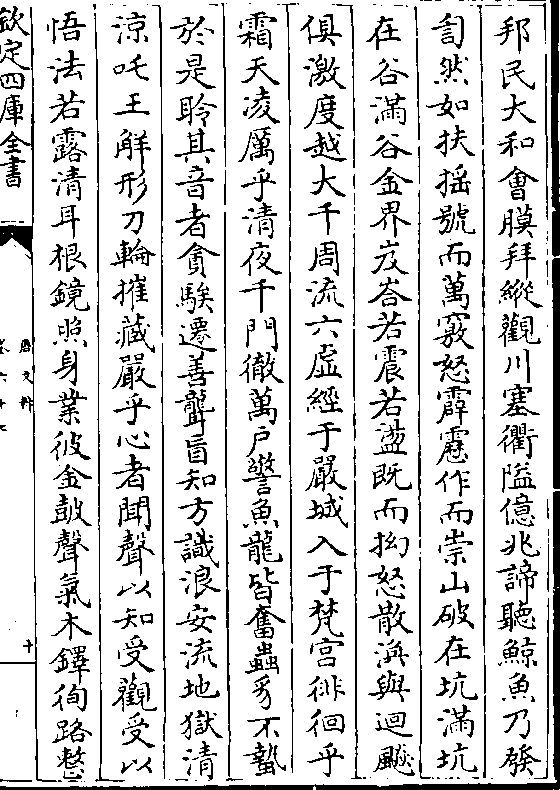 邦民大和會膜拜縱觀川塞衢隘億兆諦聽鯨魚乃發
訇然如扶揺號而萬竅怒霹靂作而崇山破在坑滿坑
在谷滿谷金界岌峇若震若盪既而拗怒散浜與迴飈
俱激度越大千周流六虛經于嚴城入于梵宮徘徊乎
霜天凌厲乎清夜千門徹萬户警魚龍皆奮蟲豸不蟄
於是聆其音者貪騃遷善聾盲知方識浪安流地獄清
涼吒王解形刀輪摧藏嚴乎心者聞聲以知受觀受以
悟法若露清耳根鏡照身業彼金鼓聲氣木鐸徇路憗
欽定四庫全書
唐文粹
卷六十七
十